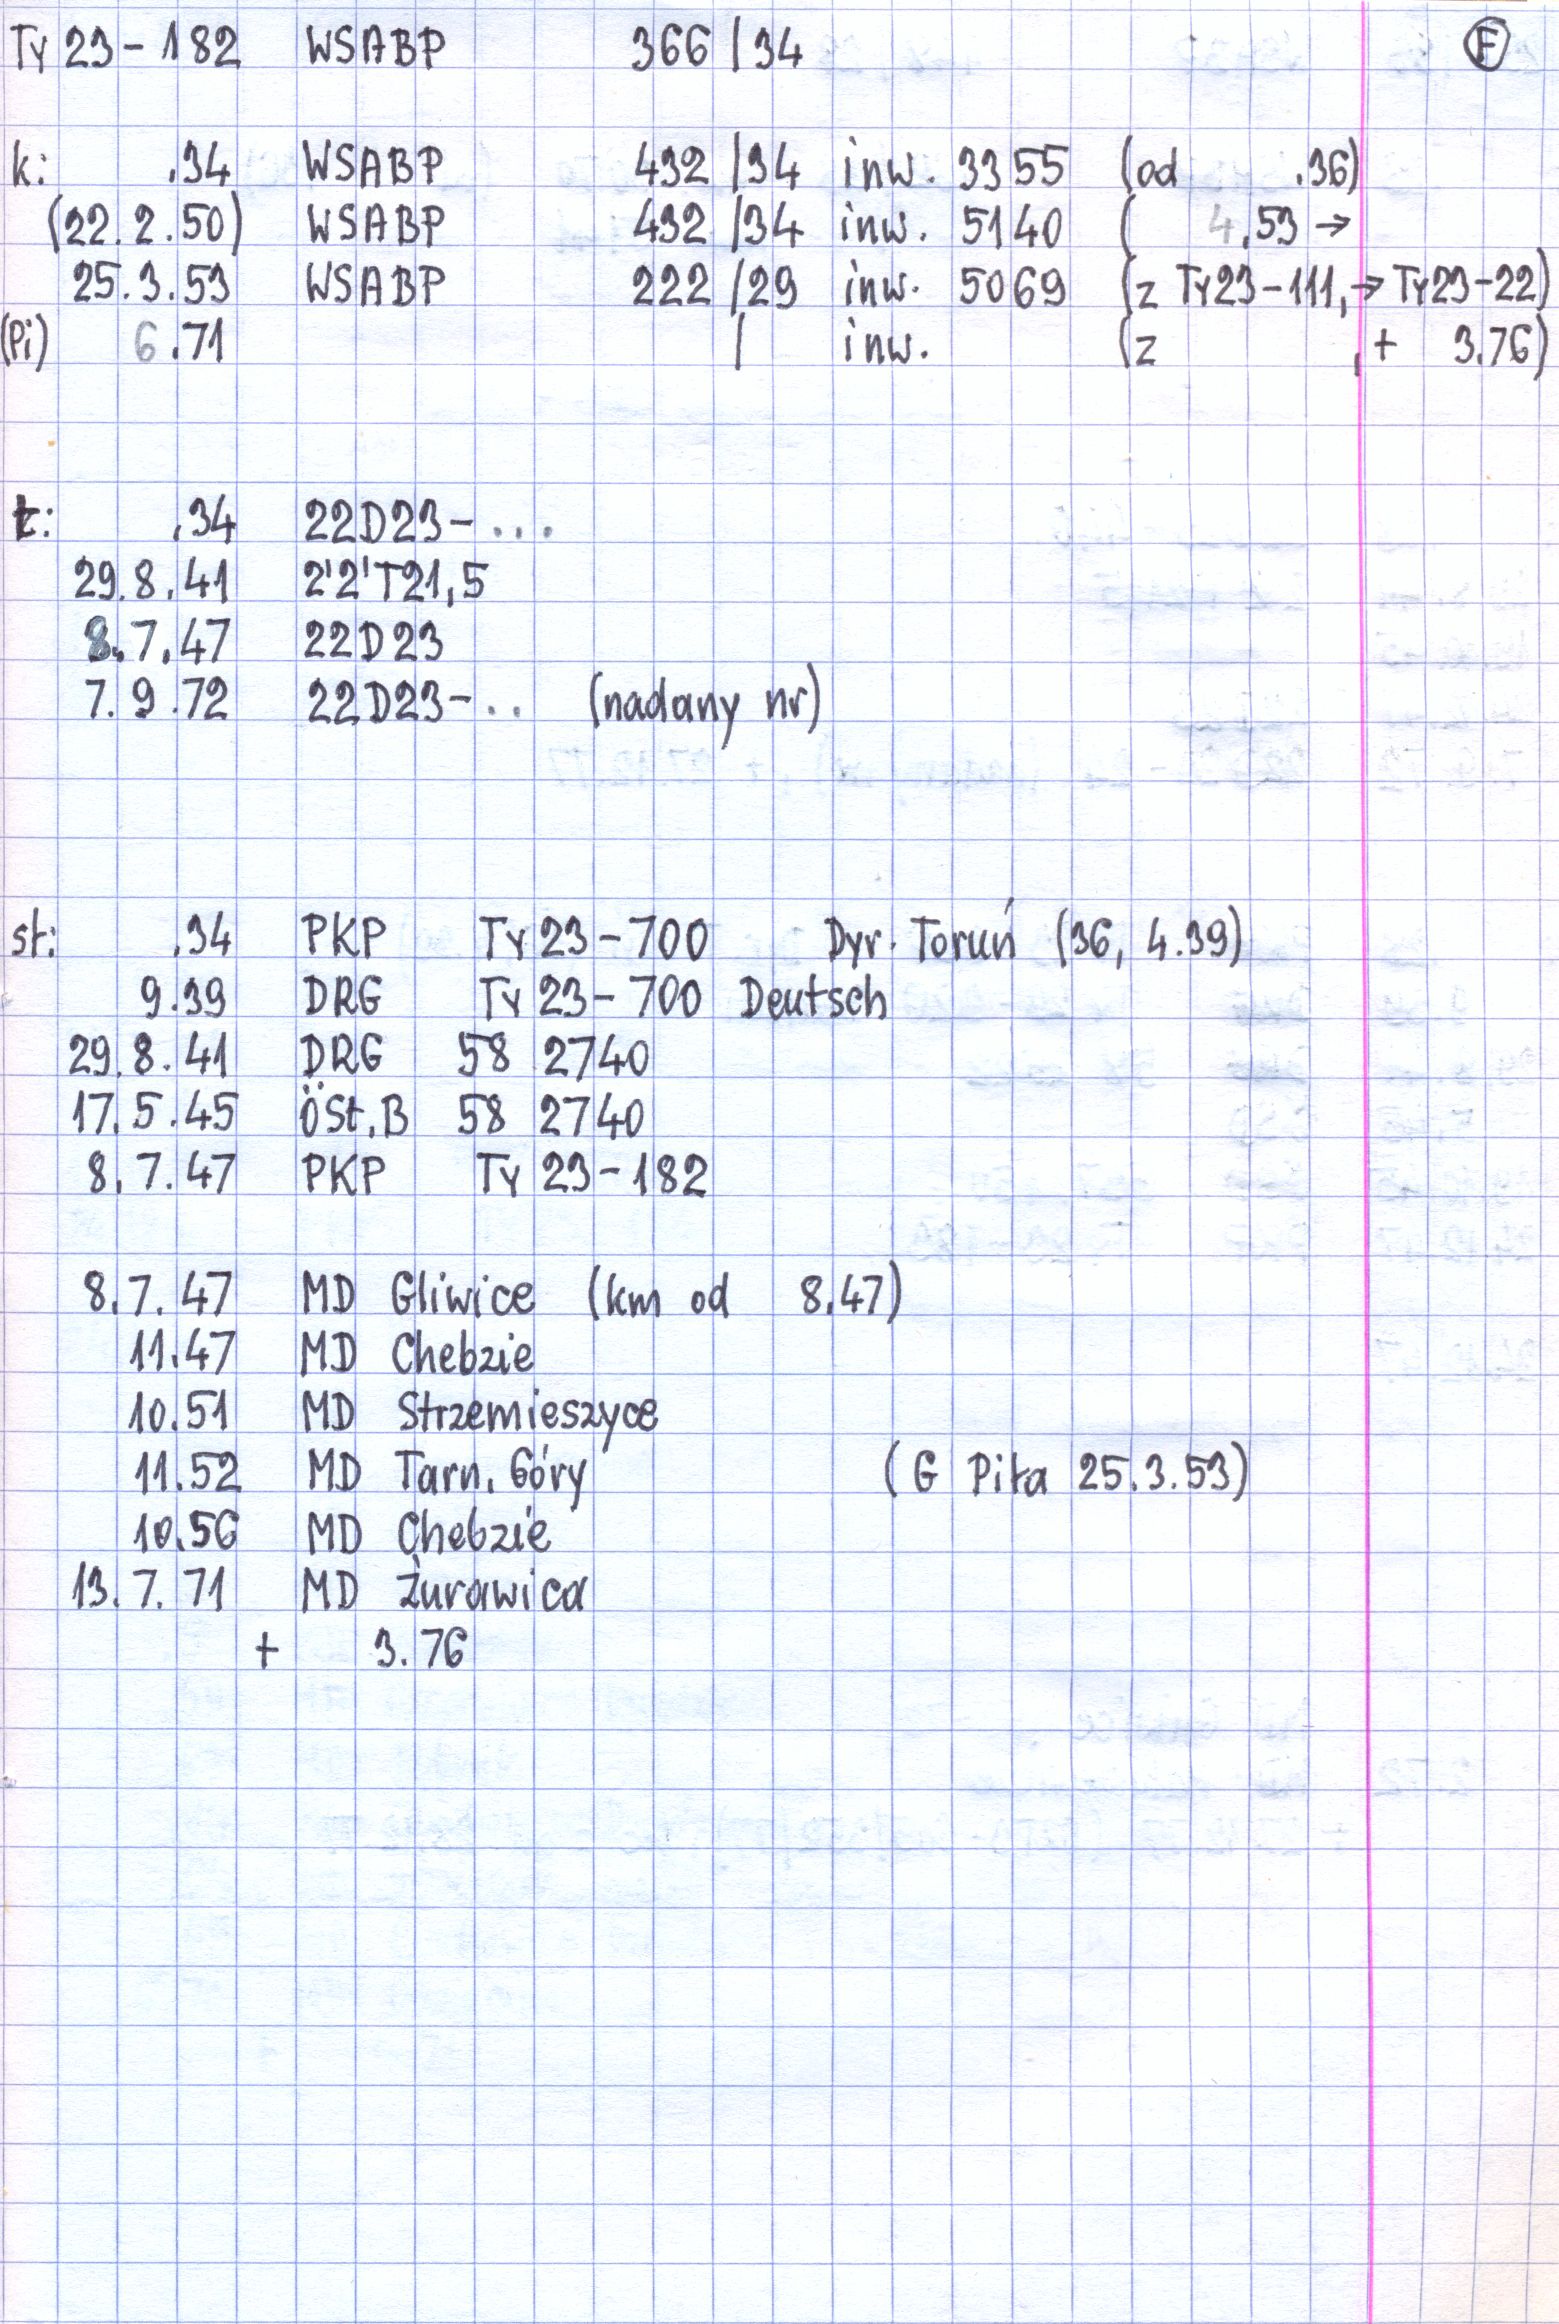 Ty 23-182 WSABP 366/34 F
k: .34 WSABP 432/34 inw. 3355 (od .36)
(22.2.50) WSABP 432/34 inw. 5140 ( 4.53 →
25.3.53 WSABP 222/29 inw. 5069 (z Ty23-111, → Ty23-22)
(Pi) 6.71 / inw. (z , + 3.76)
t: .34 22D23-...
29.8.41 2'2'T21,5
8.7.47 22D23
7.9.72 22D23-.. (nadany nr)
st: .34 PKP Ty 23-700 Dyr. Toruń (36, 4.39)
9.39 DRG Ty 23-700 Deutsch
29.8.41 DRG 58 2740
17.5.45 ÖSt.B 58 2740
8.7.47 PKP Ty 23-182
8.7.47 MD Gliwice (km od 8.47)
11.47 MD Chebzie
10.51 MD Strzemieszyce
11.52 MD Tarn. Góry (G Piła 25.3.53)
10.56 MD Chebzie
13.7.71 MD Żurawica
+ 3.76